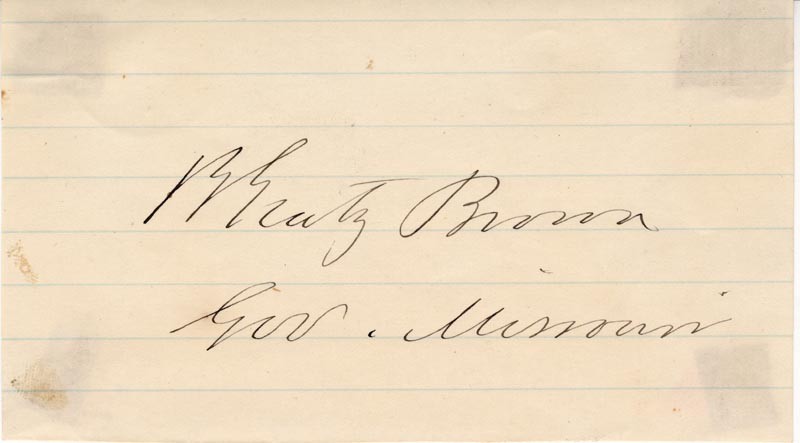 B Gratz Brown
Gov. Missouri